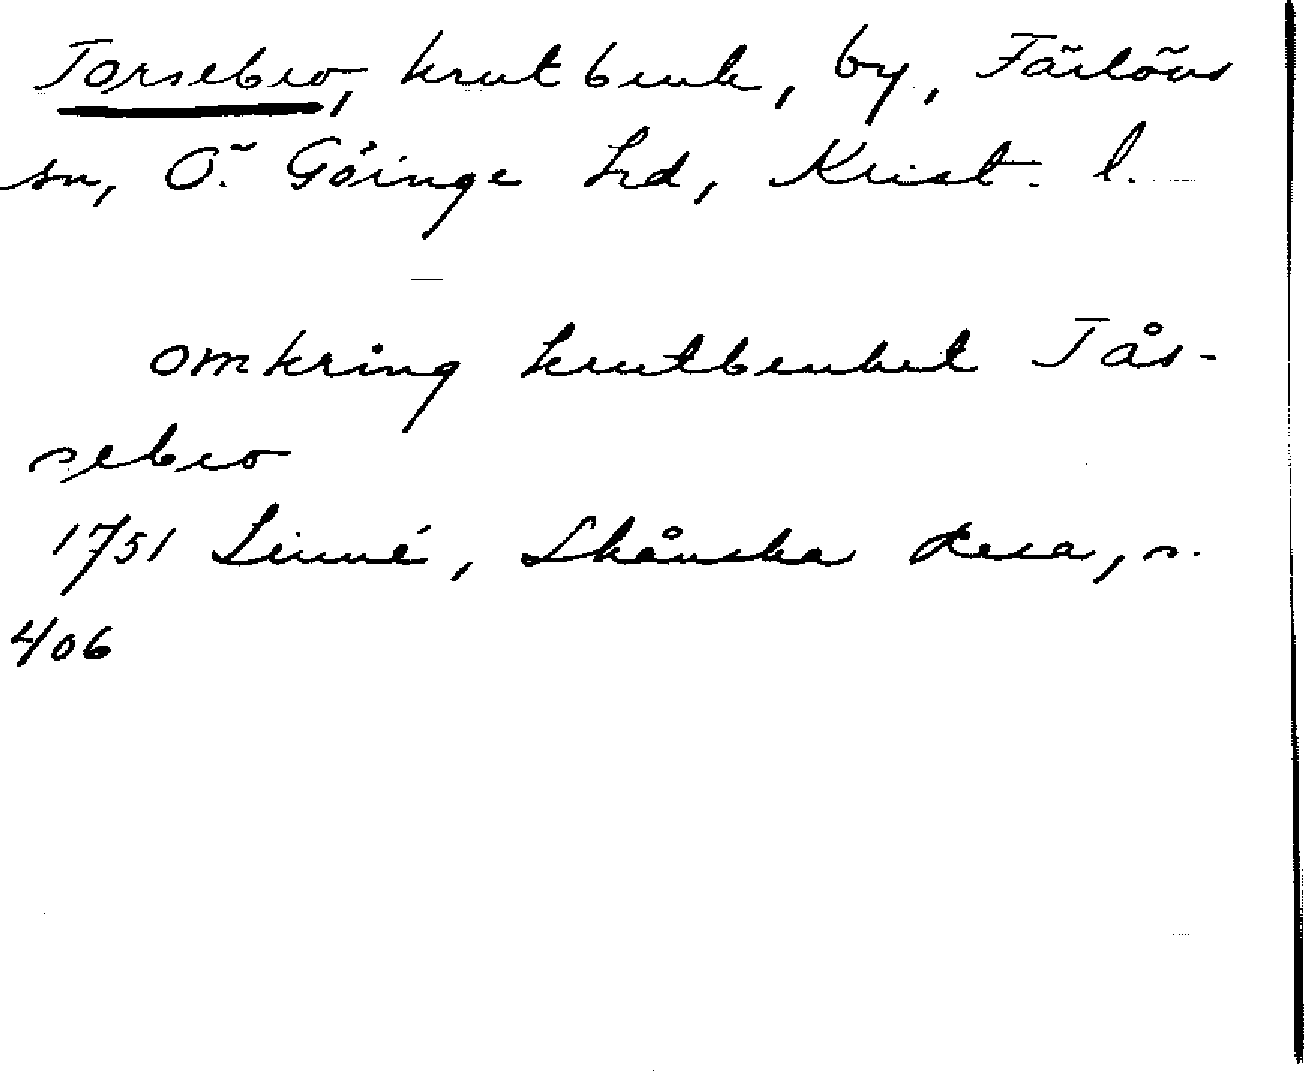 Torsebro, krutbruk, by, Färlövs
sn, Ö. Göinge hd, Krist. l.
omkring krutbruket Tås-
sebro
1751 Linné, Skånska resa, s.
406